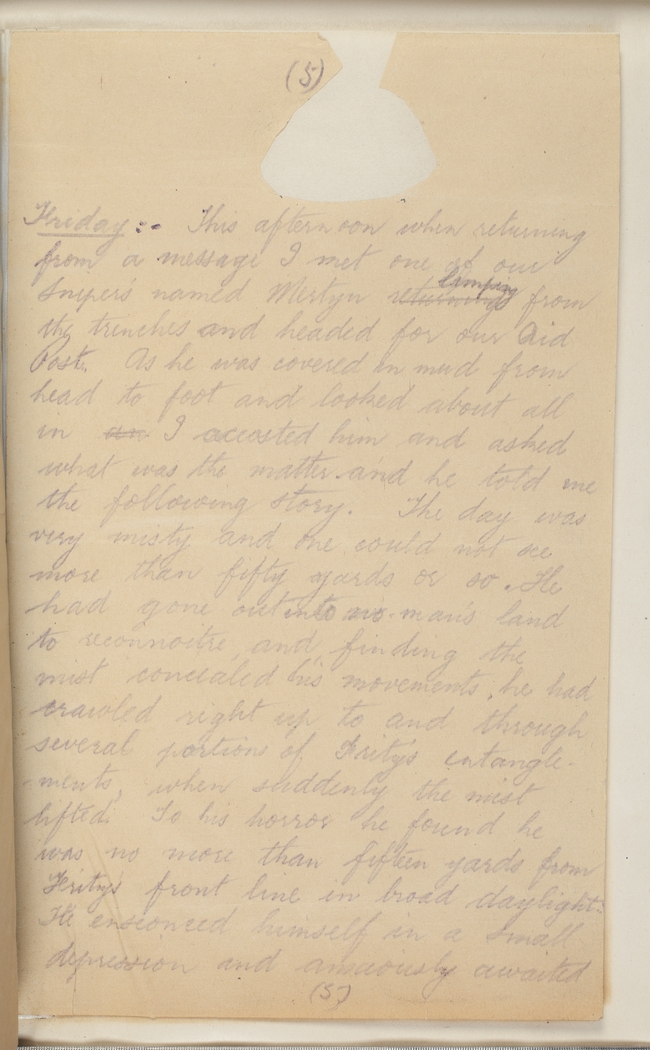 (5)
Friday:- This afternoon when returning
from a message I met one of our
limping
Snipers named Mertyn returning from
the trenches and headed for our Aid
Post. As he was covered in mud from
head to foot and looked about all
in an I accosted him and asked
what was the matter and he told me
the following story. The day was
very misty and one could not see
more than fifty yards or so. He
had gone out into no-man's land
to reconnoitre, and finding the
mist concealed his movements, he had
crawled right up to and through
several portions of Fritz's entangle-
ments, when suddenly the mist
lifted. To his horror he found he
was no more than fifteen yards from
Fritz's front line in broad daylight.
He ensconced himself in a small
depression and anxiously awaited
(5)